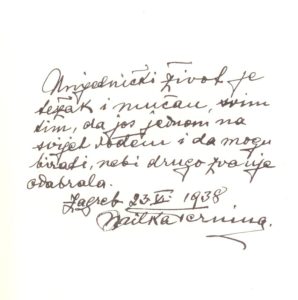 Umjetnički život je
težak i mučan, svim
tim, da još jednom na
svijet dodem i da mogu
birati, nebi drugo zvanje
odabrala.
Zagreb 23 VI 1938
Milka Ternina.